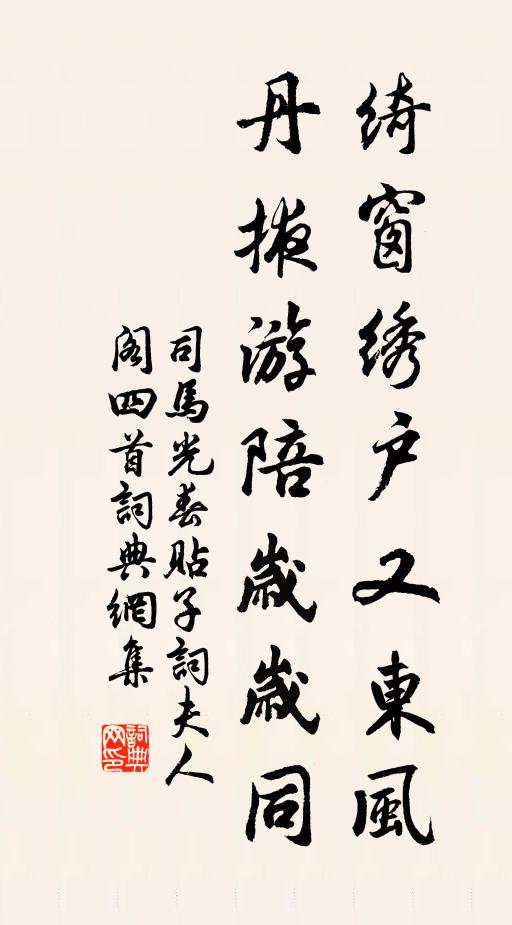 綺窗绣户又東風
丹掖游陪歲歲同
司馬光春貼子詞夫人
閣四首詞典網集
詞典网印